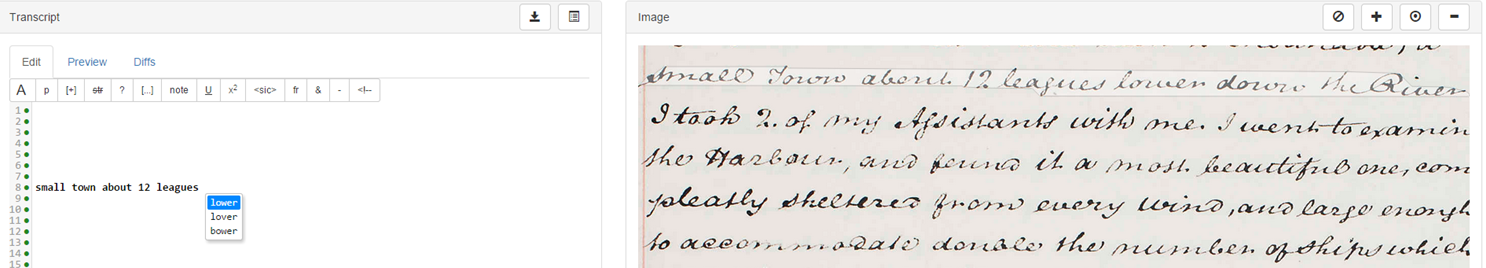 Transcript
Edit Preview Diffs
A p [+] str ? [...] note U x² <sic> fr & - <!--
1
2
3
4
5
6
7
8 small town about 12 leagues
9 lower
10 lover
11 bower
12
13
14
15
Image
small Town about 12 leagues lower down the River
I took 2. of my Assistants with me. I went to examin
the Harbour, and found it a most beautiful one, com
pleatly sheltered from every wind, and large enough
to accommodate double the number of ships which